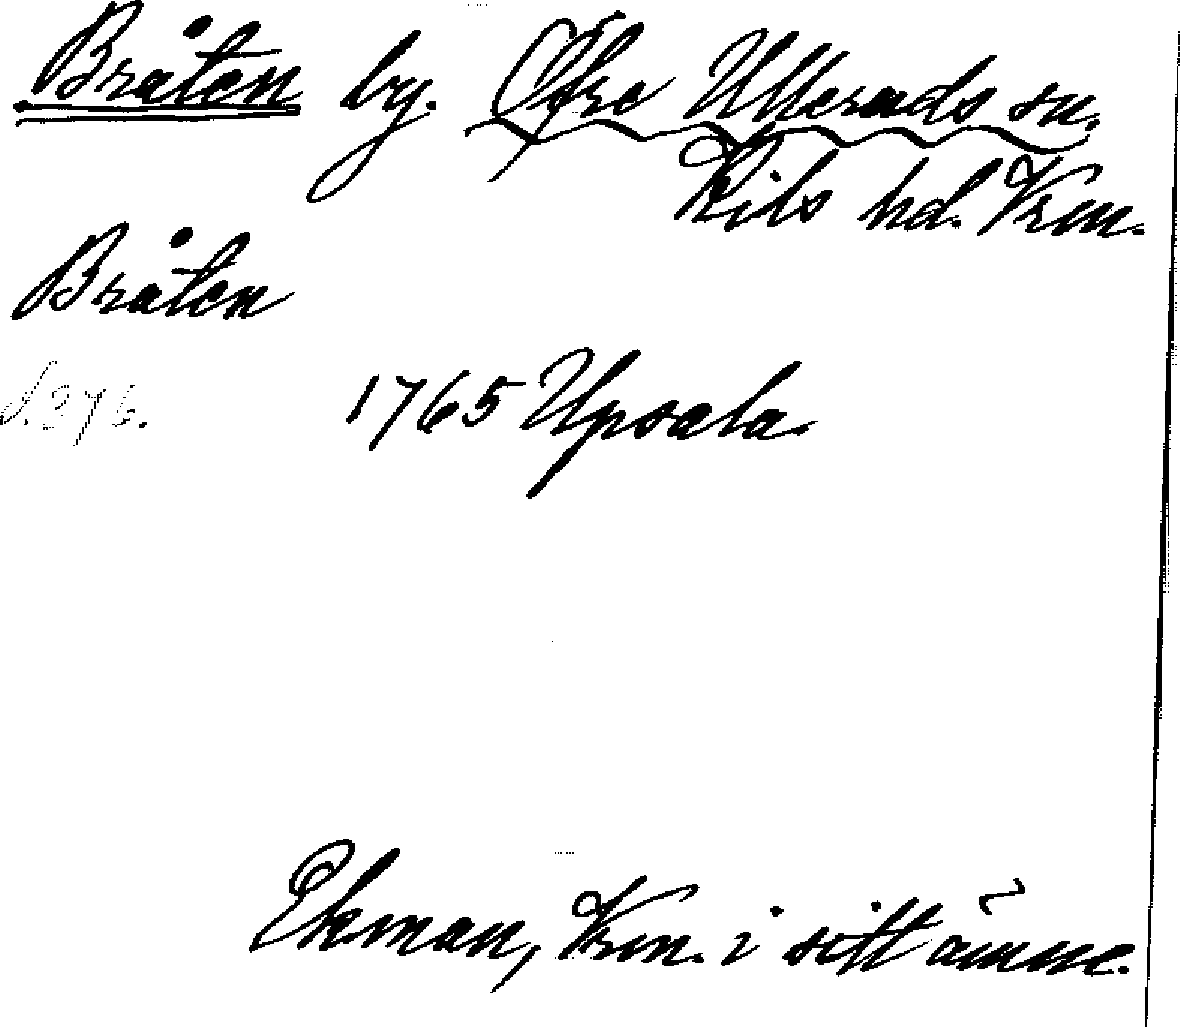 Bråten by. Öfre Ulleruds sn.
Kils hd. Vrm.
Bråten
s. 276.
1765 Upsala.
Ekman, Vrm. i sitt ämne.